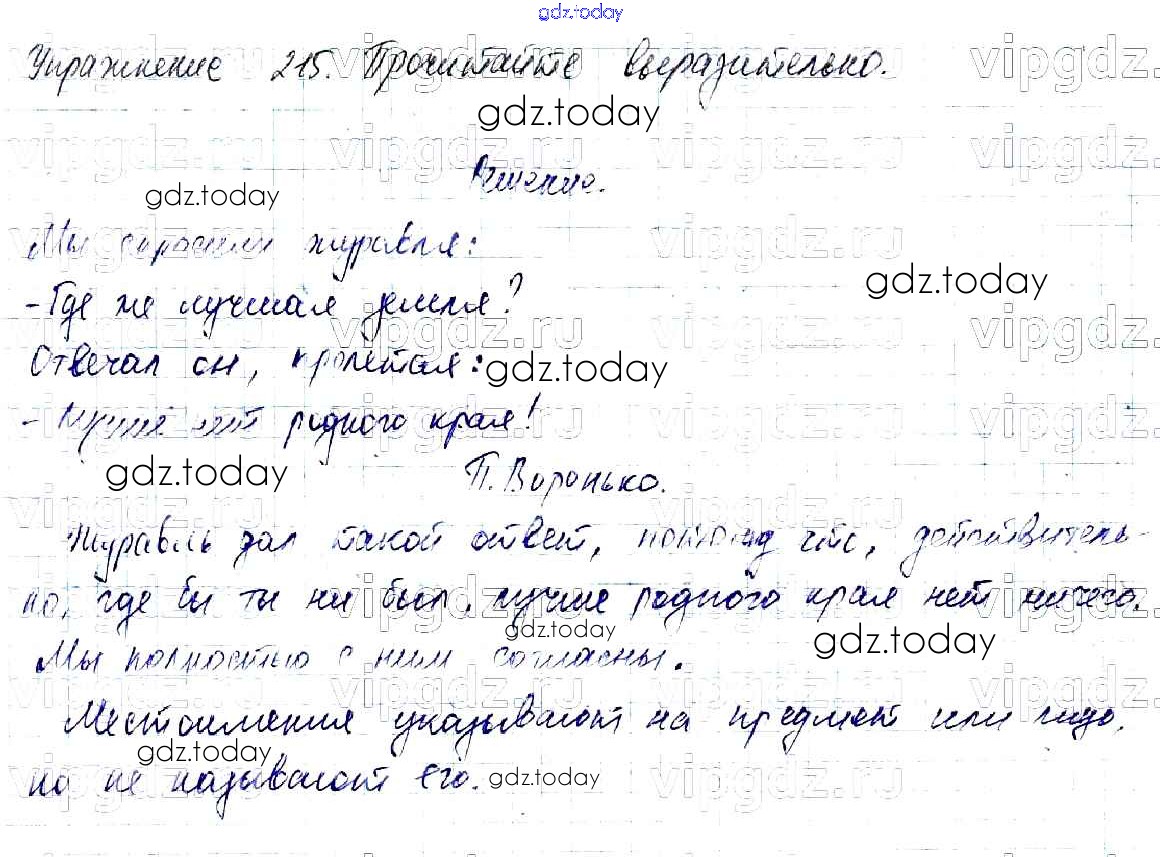 gdz.today
Упражнение 215. Прочитайте выразительно.
gdz.today
Решение.
gdz.today
Мы спросили журавля:
gdz.today
- Где же лучшая земля?
Отвечал он, пролетая:
gdz.today
- Лучше нет родного края!
gdz.today
П. Воронько.
Журавль дал такой ответ, потому что, действитель-
но, где бы ты ни был, лучше родного края нет ничего.
gdz.today
gdz.today
Мы полностью с ним согласны.
Местоимения указывают на предмет или лицо,
gdz.today
но не называют его.
gdz.today
vipgdz.ru vipgdz.ru vipgdz.ru vipgdz.ru